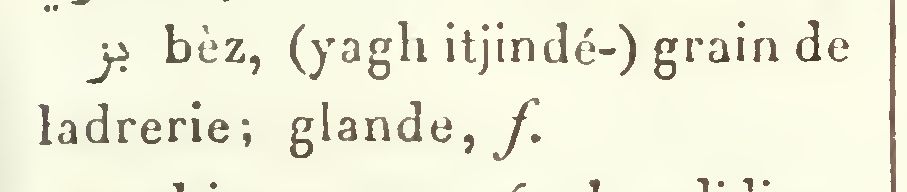 بز bèz, (yagh itjindé-) grain de
ladrerie; glande, f.